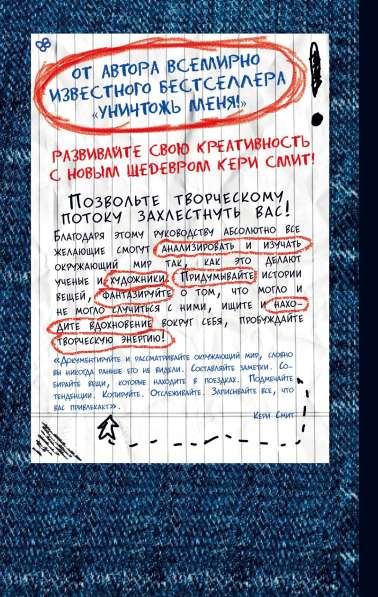 ОТ АВТОРА ВСЕМИРНО
ИЗВЕСТНОГО БЕСТСЕЛЛЕРА
«УНИЧТОЖЬ МЕНЯ!»
РАЗВИВАЙТЕ СВОЮ КРЕАТИВНОСТЬ
С НОВЫМ ШЕДЕВРОМ КЕРИ СМИТ!
ПОЗВОЛЬТЕ ТВОРЧЕСКОМУ
ПОТОКУ ЗАХЛЕСТНУТЬ ВАС!
БЛАГОДАРЯ ЭТОМУ РУКОВОДСТВУ АБСОЛЮТНО ВСЕ
ЖЕЛАЮЩИЕ СМОГУТ АНАЛИЗИРОВАТЬ И ИЗУЧАТЬ
ОКРУЖАЮЩИЙ МИР ТАК, КАК ЭТО ДЕЛАЮТ
УЧЕНЫЕ И ХУДОЖНИКИ. ПРИДУМЫВАЙТЕ ИСТОРИИ
ВЕЩЕЙ, ФАНТАЗИРУЙТЕ О ТОМ, ЧТО МОГЛО И
НЕ МОГЛО СЛУЧИТЬСЯ С НИМИ, ИЩИТЕ И НАХО-
ДИТЕ ВДОХНОВЕНИЕ ВОКРУГ СЕБЯ, ПРОБУЖДАЙТЕ
ТВОРЧЕСКУЮ ЭНЕРГИЮ!
«ДОКУМЕНТИРУЙТЕ И РАССМАТРИВАЙТЕ ОКРУЖАЮЩИЙ МИР, СЛОВНО
ВЫ НИКОГДА РАНЬШЕ ЕГО НЕ ВИДЕЛИ. СОСТАВЛЯЙТЕ ЗАМЕТКИ. СО-
БИРАЙТЕ ВЕЩИ, КОТОРЫЕ НАХОДИТЕ В ПОЕЗДКАХ. ПОДМЕЧАЙТЕ
ТЕНДЕНЦИИ. КОПИРУЙТЕ. ОТСЛЕЖИВАЙТЕ. ЗАПИСЫВАЙТЕ ВСЕ, ЧТО
ВАС ПРИВЛЕКАЕТ».
КЕРИ СМИТ